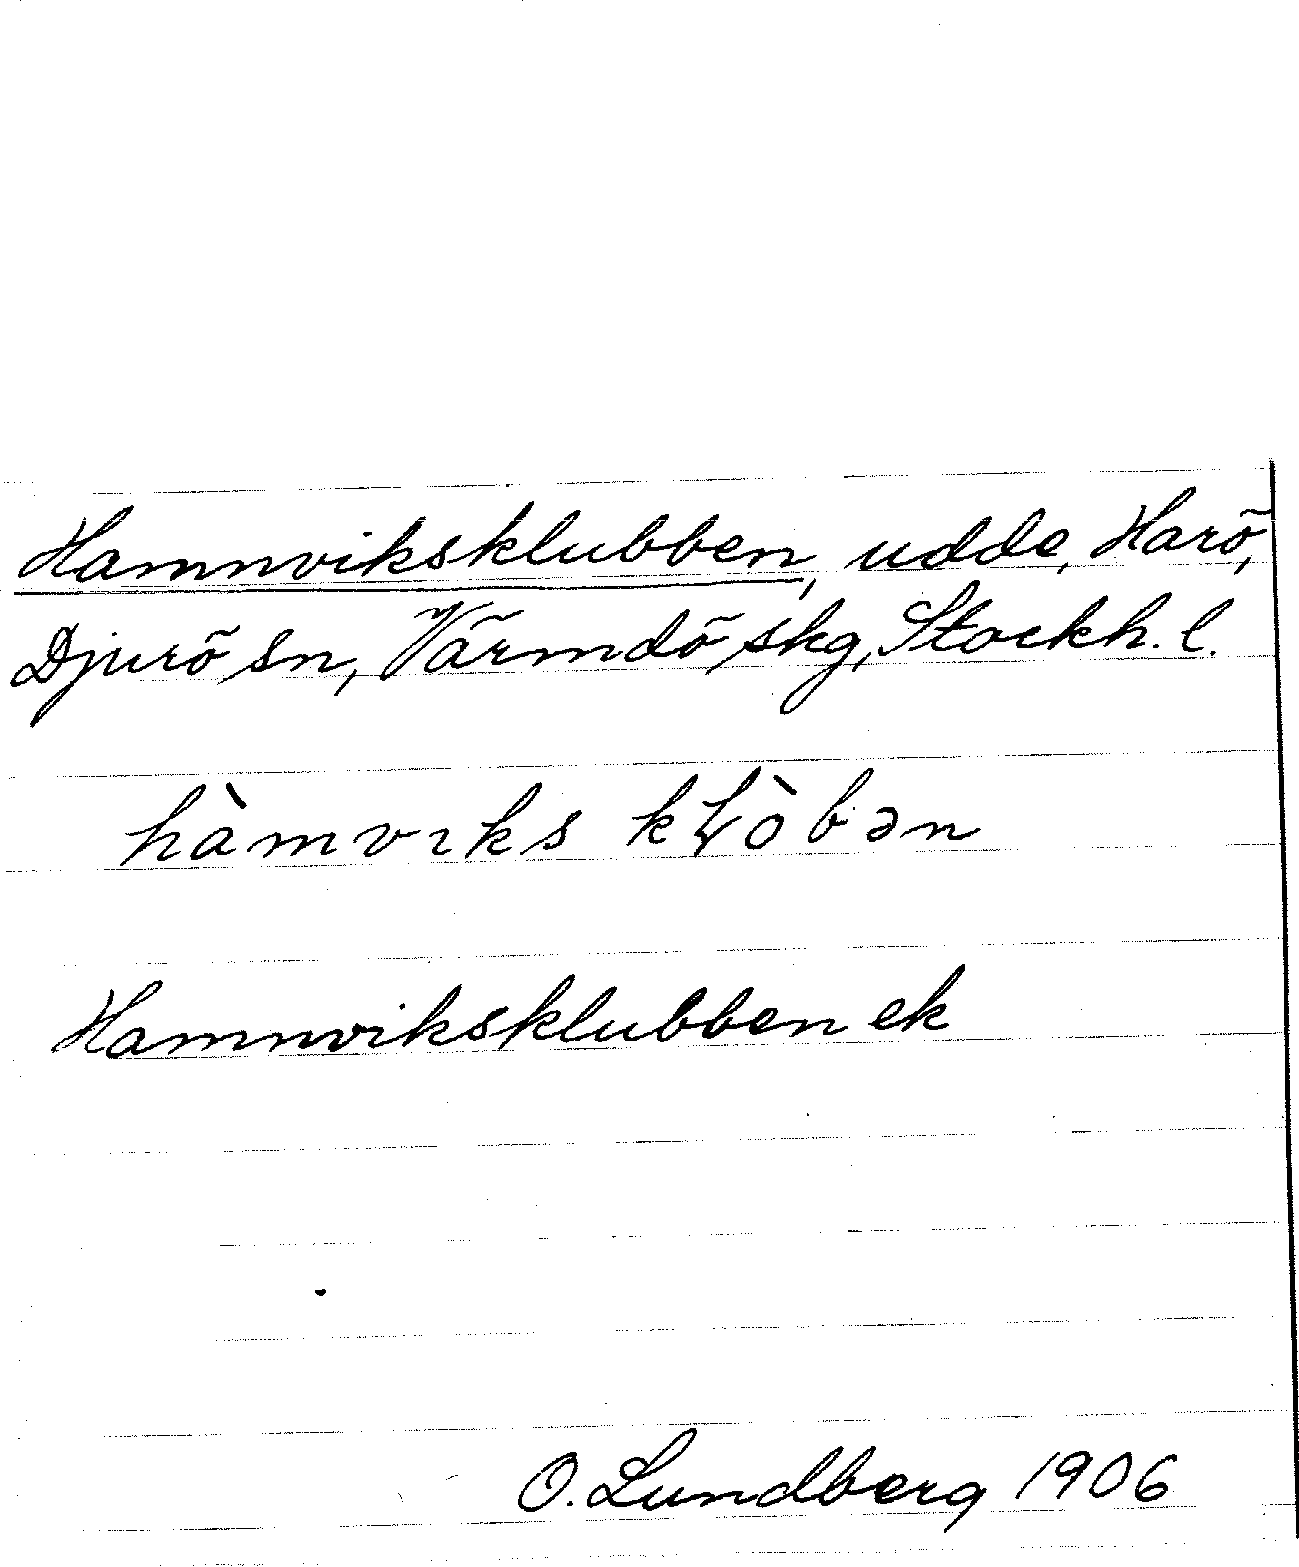 Hamnviksklubben, udde, Harö,
Djurö sn, Värmdö skg, Stockh. l.
hàmvıks kⱡòbən
Hamnviksklubben ek
O. Lundberg 1906